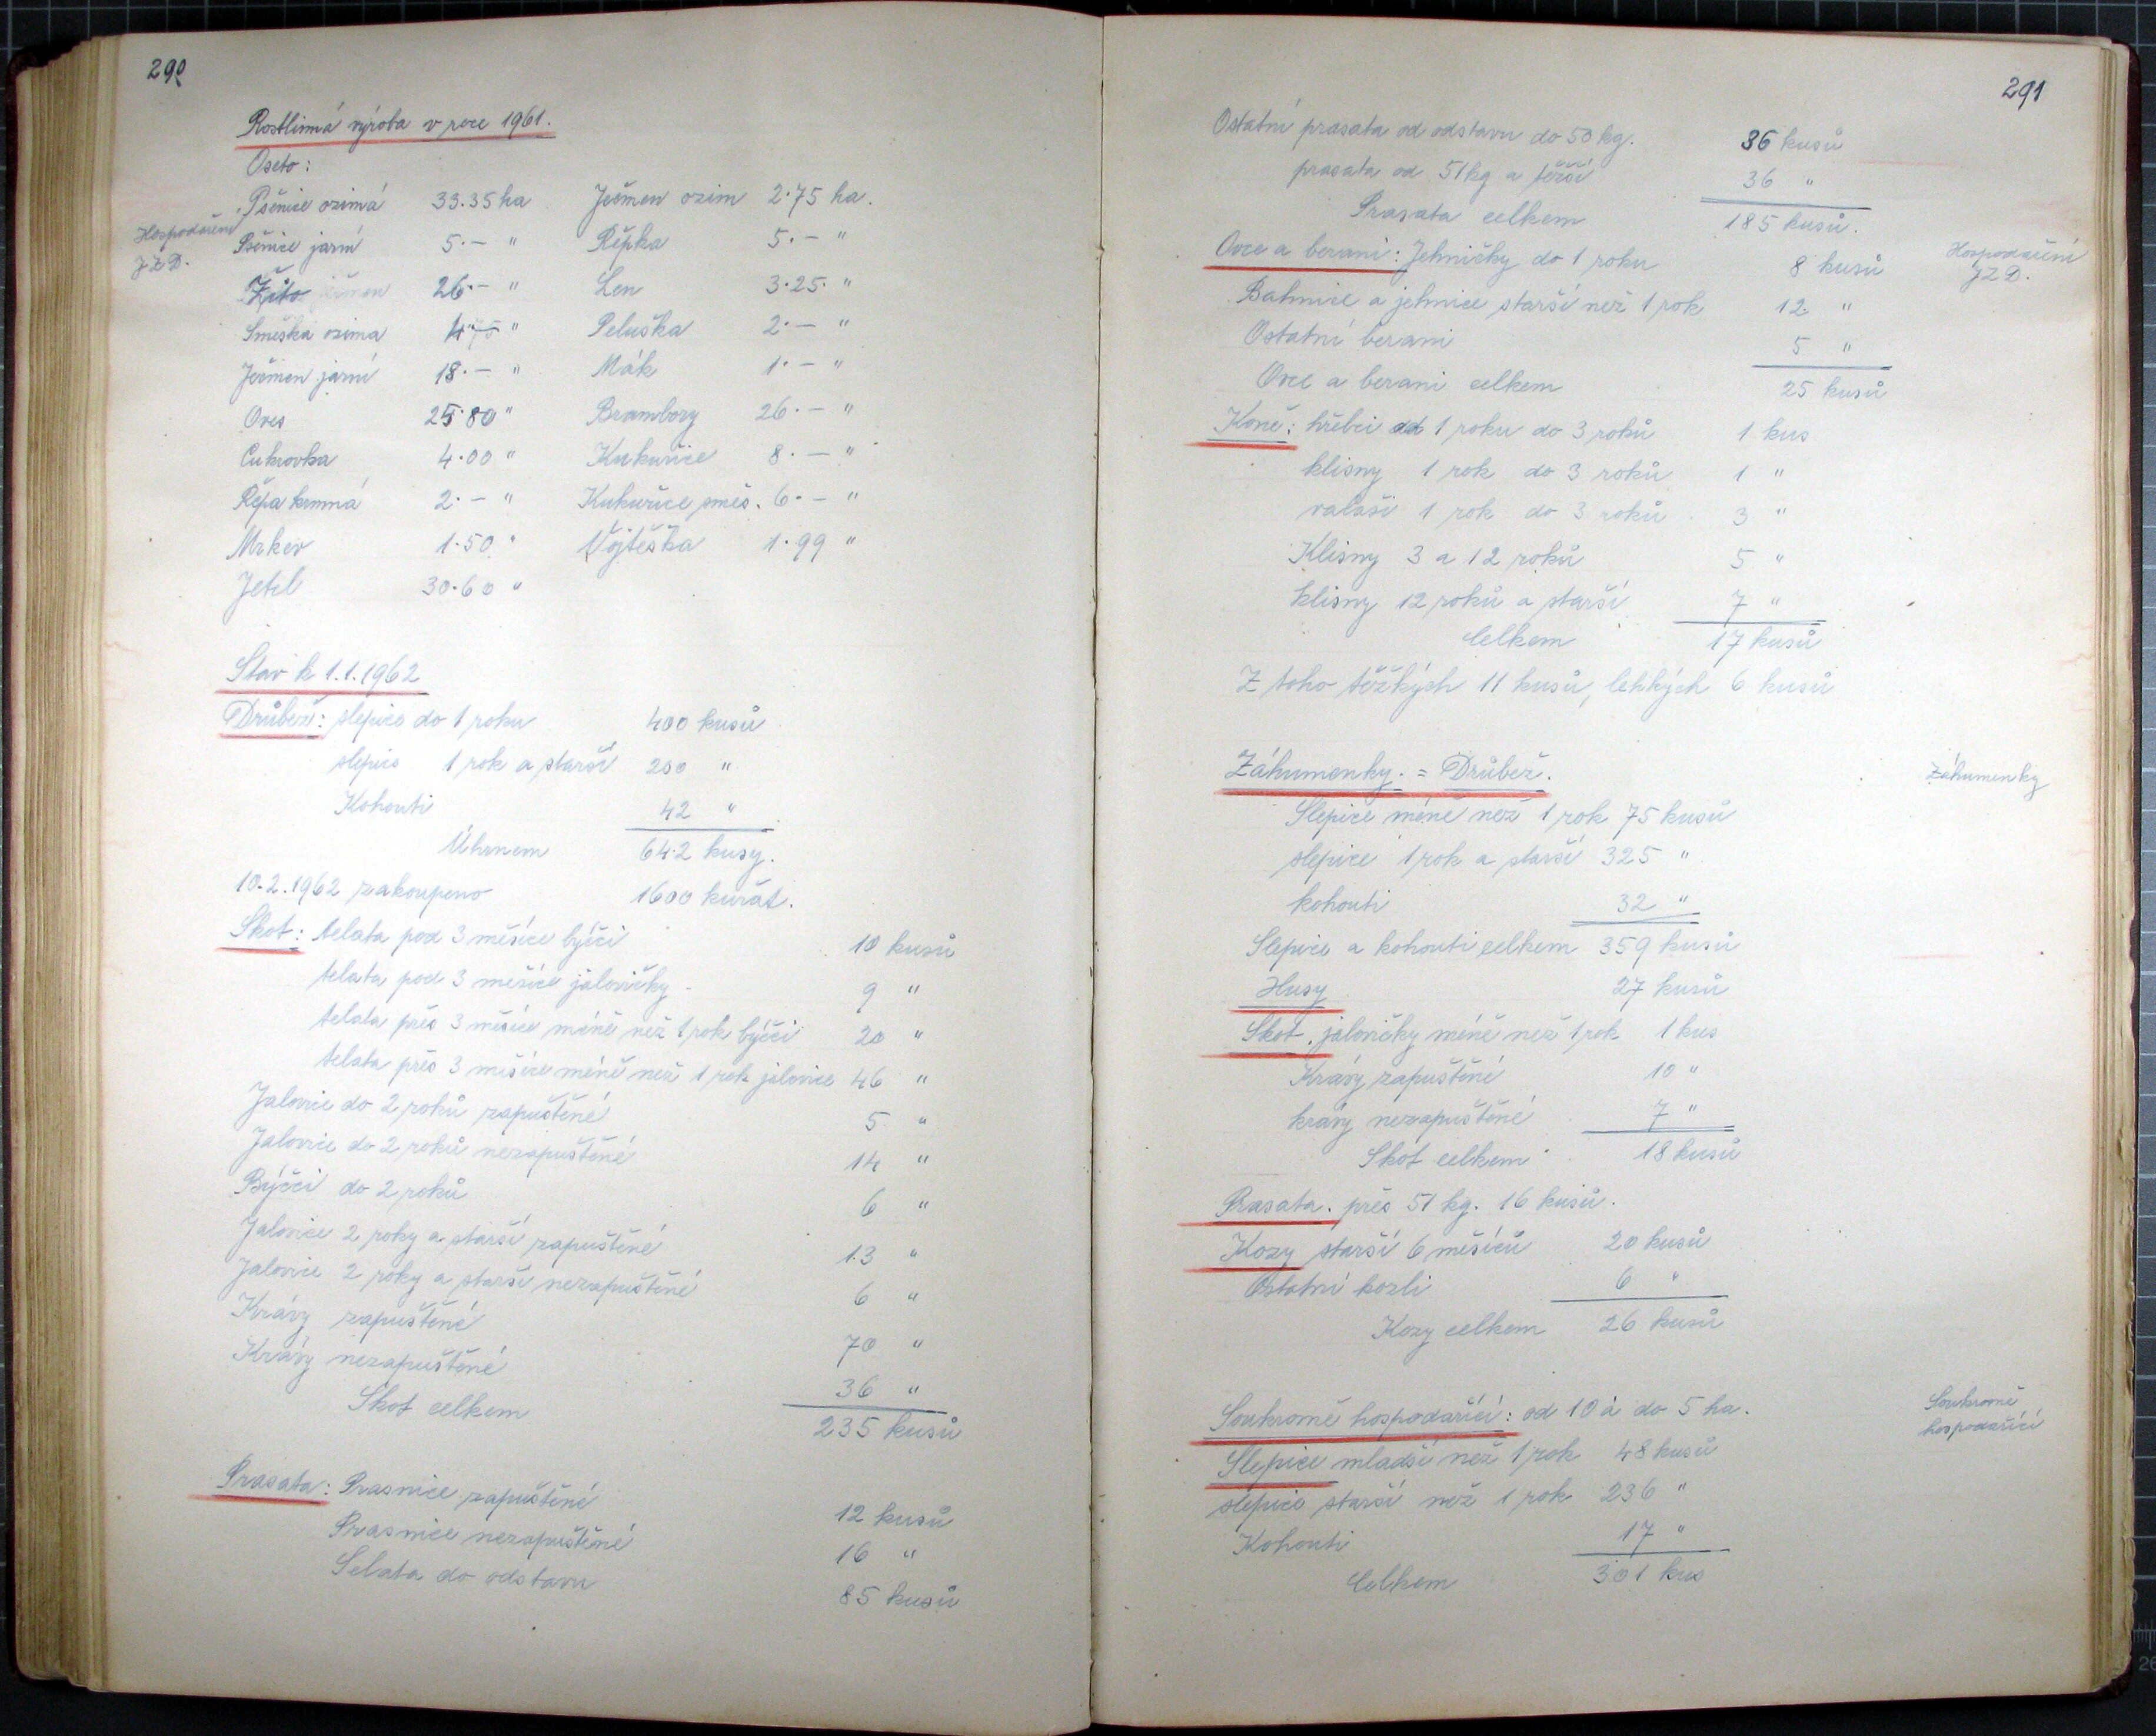 290
Rostlinná výroba v roce 1961.
Oseto:
Hospodaření
J Z D.
Pšenice ozimá 33.35 ha Ječmen ozim 2.75 ha.
Pšenice jarní 5.— " Řepka 5.— "
Žito 26.— " Len 3.25. "
Směska ozima 4.— " Peluška 2.— "
Ječmen jarní 18.— " Mák 1.— "
Oves 25.80 " Brambory 26.— "
Cukrovka 4.00 " Kukuřice 8.— "
Řepa krmná 2.— " Kukuřice směs. 6.— "
Mrkev 1.50 " Vojtěška 1.99 "
Jetel 30.60 "
Stav k 1.1.1962
Drůbež: slepice do 1 roku 400 kusů
slepice 1 rok a starší 200 "
Kohouti 42 "
Úhrnem 642 kusy.
10.2.1962 zakoupeno 1600 kuřat.
Skot: telata pod 3 měsíce býčci 10 kusů
telata pod 3 měsíce jalovičky - 9 "
telata přes 3 měsíce méně než 1 rok býčci 20 "
telata přes 3 měsíce méně než 1 rok jalovice 46 "
Jalovice do 2 roků zapuštěné 5 "
Jalovice do 2 roků nezapuštěné 14 "
Býčci do 2 roků 6 "
Jalovice 2 roky a starší zapuštěné 13 "
Jalovice 2 roky a starší nezapuštěné 6 "
Krávy zapuštěné 70 "
Krávy nezapuštěné 36 "
Skot celkem 235 kusů
Prasata: Prasnice zapuštěné 12 kusů
Prasnice nezapuštěné 16 "
Selata do odstavu 85 kusů
291
Ostatní prasata od odstavu do 50 kg. 36 kusů
prasata od 51 kg a těžší 36 "
Prasata celkem 185 kusů.
Hospodaření
J Z D.
Ovce a berani: Jehničky do 1 roku 8 kusů
Bahnice a jehnice starší než 1 rok 12 "
Ostatní berani 5 "
Ovce a berani celkem 25 kusů
Koně: hřebci od 1 roku do 3 roků 1 kus
klisny 1 rok do 3 roků 1 "
valaši 1 rok do 3 roků 3 "
Klisny 3 a 12 roků 5 "
klisny 12 roků a starší 7 "
Celkem 17 kusů
Z toho těžkých 11 kusů, lehkých 6 kusů
Záhumenky. = Drůbež.
Záhumenky
Slepice méně než 1 rok 75 kusů
slepice 1 rok a starší 325 "
kohouti 32 "
Slepice a kohouti celkem 359 kusů
Husy 27 kusů
Skot. jalovičky méně než 1 rok 1 kus
Krávy zapuštěné 10 "
krávy nezapuštěné 7 "
Skot celkem 18 kusů
Prasata. přes 51 kg. 16 kusů.
Kozy starší 6 měsíců 20 kusů
Ostatní kozli 6 "
Kozy celkem 26 kusů
Soukromě
hospodařící
Soukromě hospodařící: od 10 á do 5 ha.
Slepice mladší než 1 rok 48 kusů
slepice starší než 1 rok 236 "
Kohouti 17 "
Celkem 301 kus